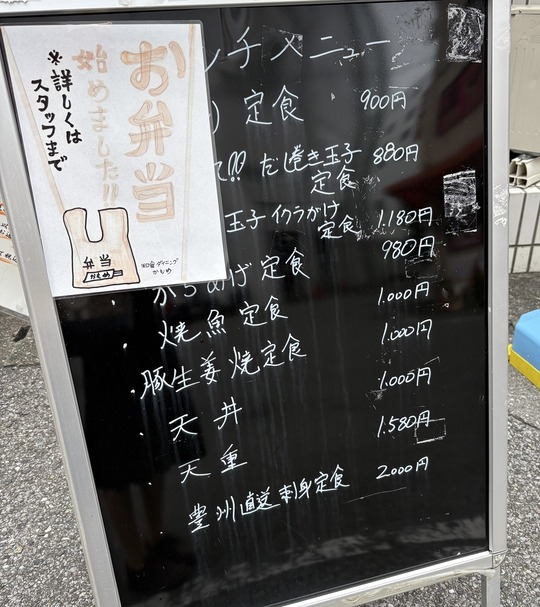 お弁当
始めました!!
※詳しくは
スタッフまで
弁当
かもめ
和食ダイニング
かもめ
ンチメニュー
定食 900円
!! だし巻き玉子
定食 880円
玉子 イクラがけ
定食 1.180円
からあげ定食 980円
焼魚定食 1.000円
豚生姜焼定食 1.000円
天丼 1.000円
天重 1.580円
豊州直送刺身定食 2000円